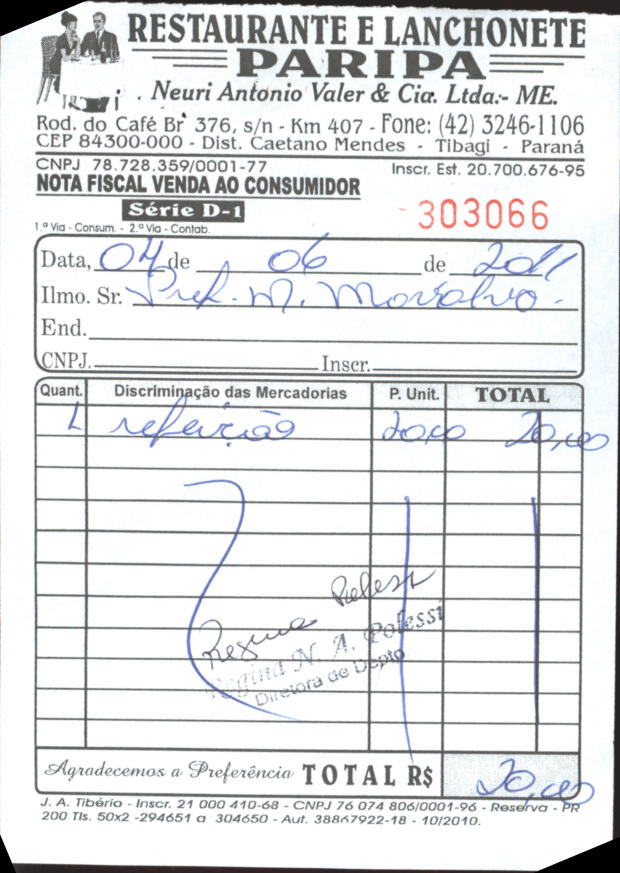 RESTAURANTE E LANCHONETE
PARIPA
Neuri Antonio Valer & Cia. Ltda.- ME.
Rod. do Café Br 376, s/n - Km 407 - Fone: (42) 3246-1106
CEP 84300-000 - Dist. Caetano Mendes - Tibagi - Paraná
CNPJ 78.728.359/0001-77 Inscr. Est. 20.700.676-95
NOTA FISCAL VENDA AO CONSUMIDOR
Série D-1 303066
1.ª Via - Consum. - 2.ª Via - Contab.
Data, 04 de 06 de 2011
Ilmo. Sr. Pref. M.
End.
CNPJ. Inscr.
Quant. Discriminação das Mercadorias P. Unit. TOTAL
1 refeição 20,00 20,00
Regina Polessi
Regina N. A. Polessi
Diretora de Depto
Agradecemos a Preferência TOTAL R$ 20,00
J. A. Tibério - Inscr. 21 000 410-68 - CNPJ 76 074 806/0001-96 - Reserva - PR
200 Tls. 50x2 -294651 a 304650 - Aut. 38867922-18 - 10/2010.